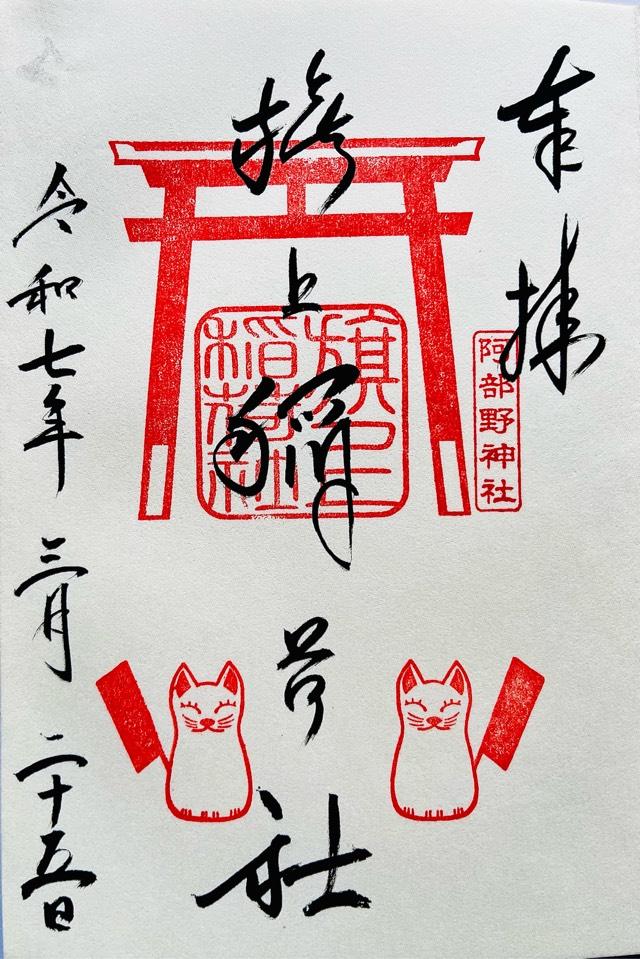 奉拝
阿部野神社
旗上稲荷社
旗上
稲荷社
令和七年三月二十五日